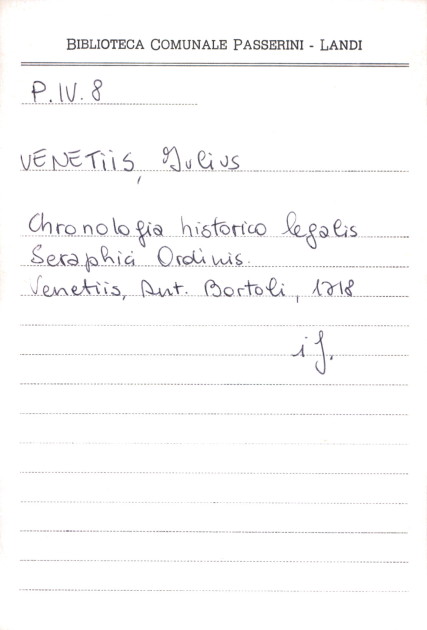 BIBLIOTECA COMUNALE PASSERINI - LANDI
P.IV.8
VENETIIS, Julius
Chronologia historico legalis
Seraphici Ordinis.
Venetiis, Ant. Bortoli, 1718